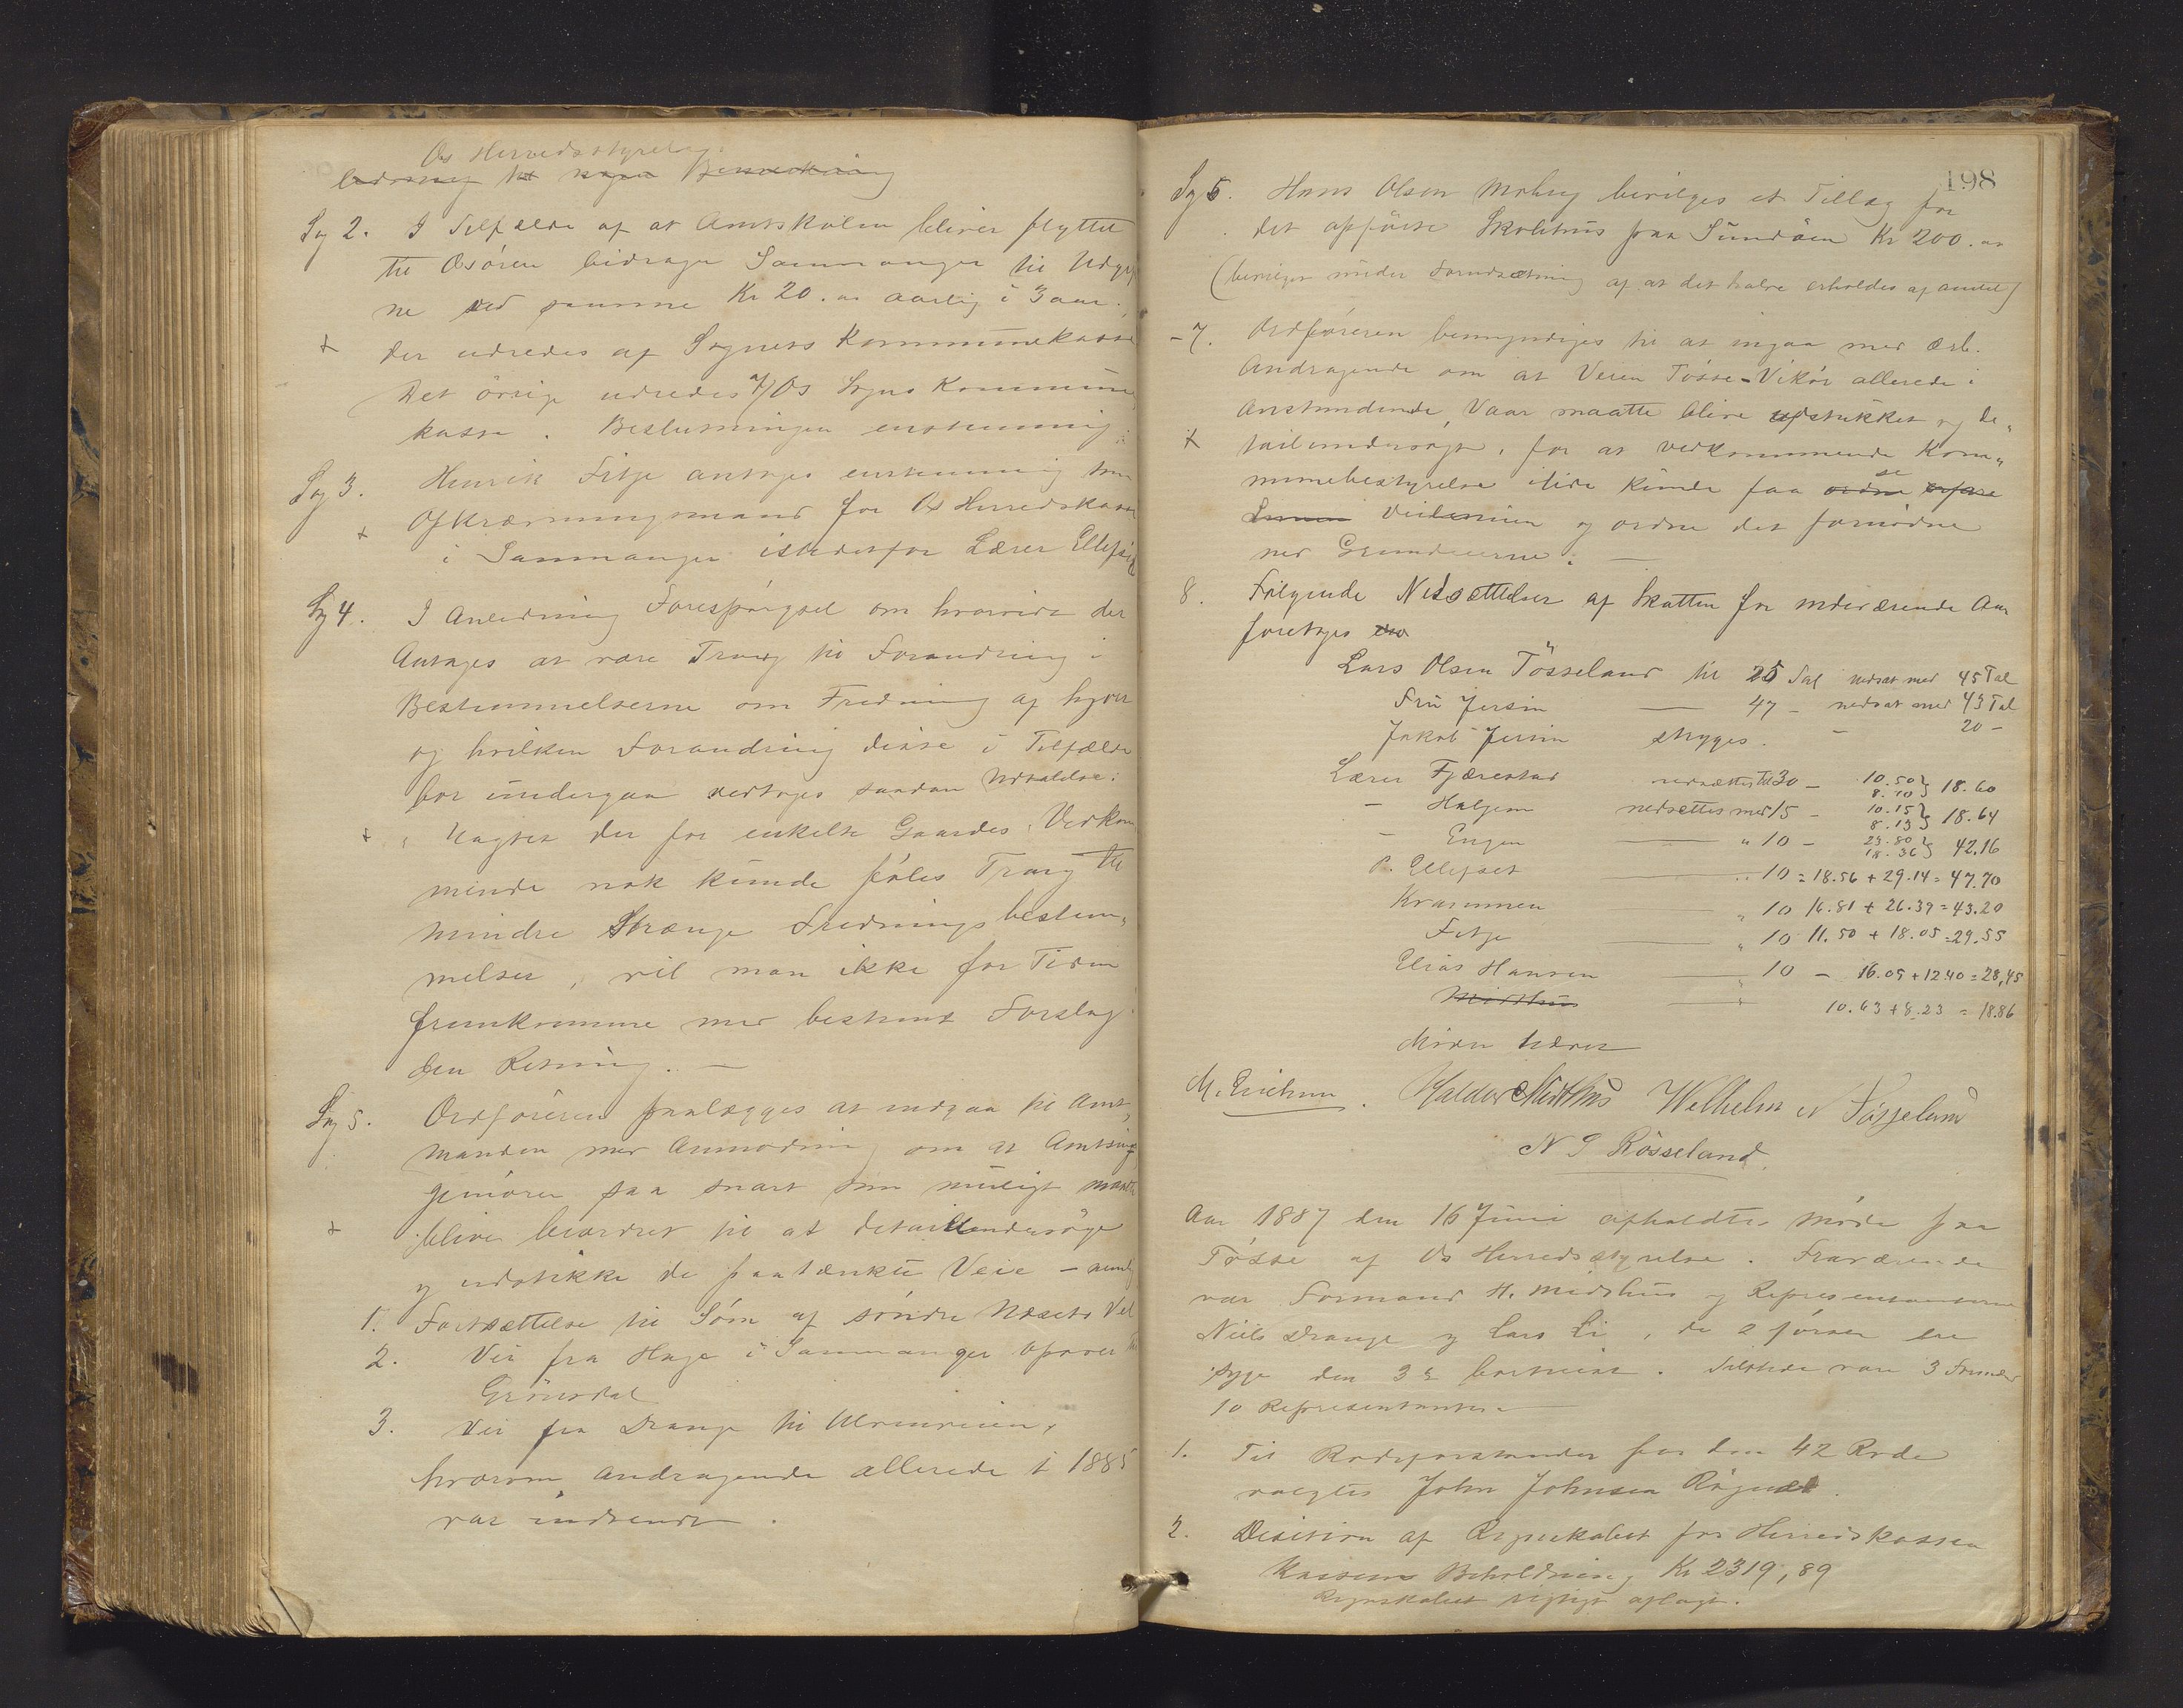 Os Herredsstyrelse.
Sag 2. I Tilfælde af at Amtskolen bliver flyttet
til Osören bidrager Samnanger til Udgifter-
ne ved samme Kr 20.00 aarlig i 3 aar.,
+ der udredes af Sognets Kommunekasse
Det övrige udredes af Os Sogns Kommune
kasse. Beslutningen enstemmig.
Sag 3. Henrik Fitje antages enstemmig som
+ Opkrævningsmand for Os Herredskasse
i Samnanger istedetfor Lærer Ellefsen
Sag 4. I Anledning Forespörgsel om hvorvidt der
Antages at være Trang til Forandring i
Bestemmelserne om Fredning af
og hvilken Forandring disse i Tilfælde
bör undergaa vedtoges saadan Udtalelse:
+ Uagtet der for enkelte Gaardes Vedkom
mende nok kunde föles Trang til
mindre Strænge Frednings bestem„
melser, vil man ikke for Tiden
fremkomme med bestemt Forslag i
den Retning. —
Sag 5. Ordföreren paalægges at indgaa til Amt„
manden med Anmodning om at Amtsin
geniören saa snart som muligt maatte
+ blive beordret til at detaillundersöge
og udstikke de paatænkte Veie – nemlig
1. Fortsættelse til Söen af söndre Næsets Vei
2. Vei fra Hage i Samnanger opover til
Grönsdal
3. Vei fra Drange til Ulvenveien,
hvorom andragende allerede i 1885
var indsendt.
198
Sag 6. Hans Olsen Moberg bevilges et Tillæg for
det opförte Skolehus paa Sundöen Kr 200.00
(bevilges under Forudsætning af at det halve erholdes af amtet)
-7. Ordföreren bemyndiges til at ingaa med ærb.
Andragende om at Veien Tösse-Vikör allerede i
Anstundende Vaar maatte blive udstukket og de„
+ tailundersögt, for at vedkommende Kom„
munebestyrelse itide kunde faa se
Veilinien og ordne det fornödne
med Grundeierne. —
8. Fölgende Nedsættelser af Skatten for indeværende Aar
foretages
Lars Olsen Tösseland til 25 Tal nedsat med 45 Tal
Fru Jersin — 47 – nedsat med 43 Tal
Jakob Jersin stryges. – 20 –
Lærer Fjærestad nedsættes Til 30 – 10.50 8.10 } 18.60
– Haljem nedsættes med 15 – 10.15 8.13 } 18.64
– Engen — " 10 – 23.80 18.36 } 42.16
P. Ellefset — " 10 = 18.56 + 29.14 = 47.70
— " 10 16.81 + 26.39 = 43.20
Fitje — " 10 11.50 + 18.05 = 29.55
Elias Hansen — " 10 – 16.05 + 12.40 = 28,45
Midthus — " 10.63 + 8.23 = 18.86
Mödet hævet
M. Erichsen. Haldor Midthus Wilhelm N Tösseland
N S Rösseland.
Aar 1887 den 16 Juni afholdtes Möde paa
Tösse af Os Herredsstyrelse. Fraværende
var Formand H. Midthus og Repræsentanterne
Niels Drange og Lars Li, de 2 förste ere
syge den 3die bortreist. Tilstede var 3 Formænd
10 Repræsentanter. —
1. Til Rodeforstander for den 42 Rode
valgtes John Johnsen
2. Desition af Regnskabet for Herredskassen
Kassens Beholdning Kr 2319,89
Regnskabet rigtigt aflagt.